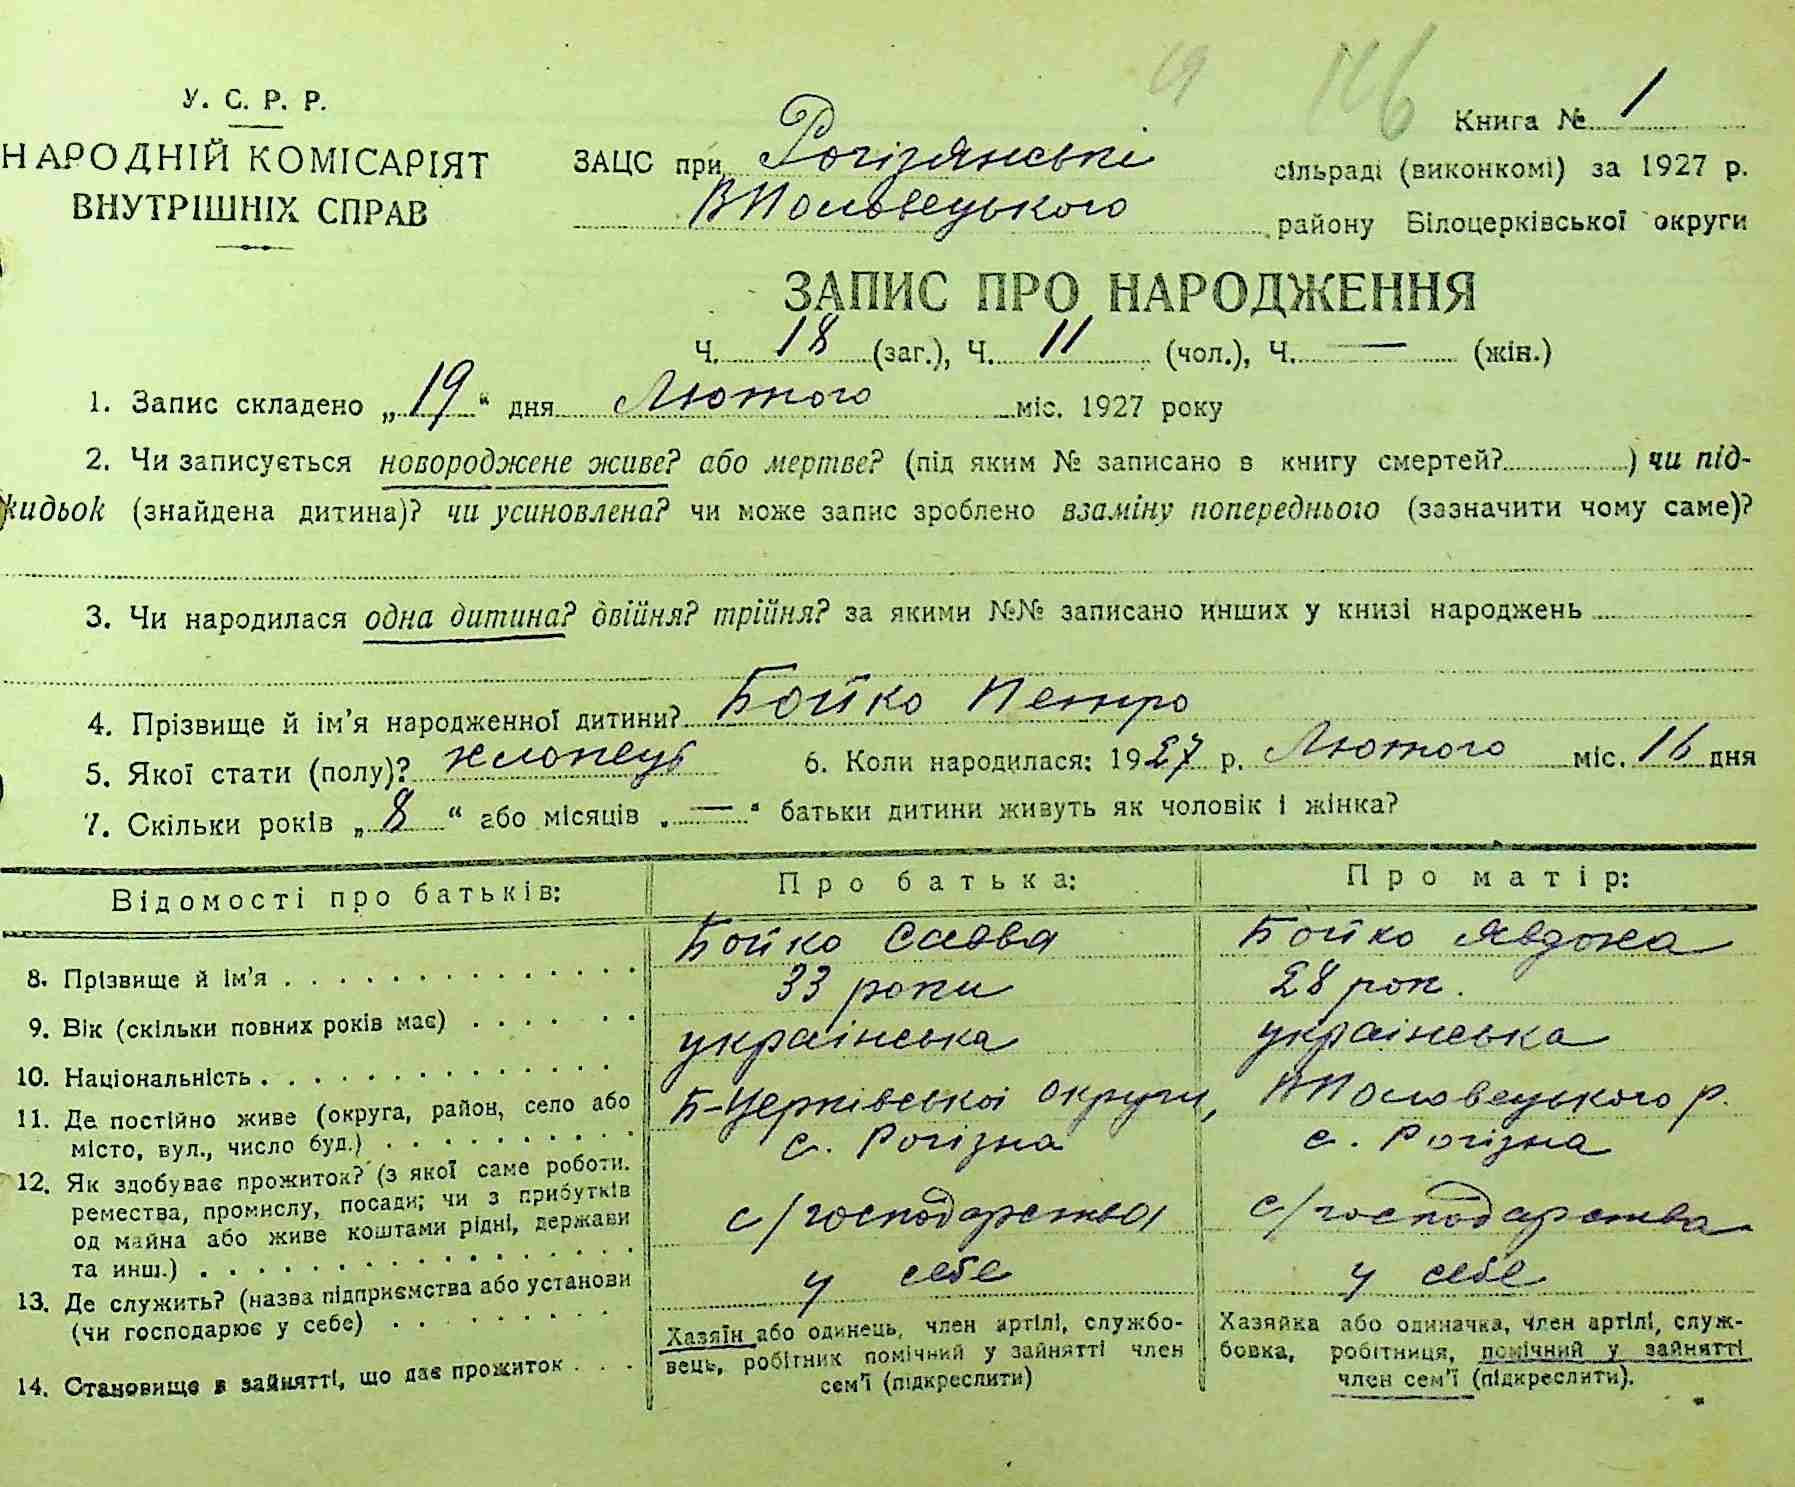 У. С. Р. Р.
НАРОДНІЙ КОМІСАРІЯТ
ВНУТРІШНІХ СПРАВ
19 146
Книга № 1
ЗАЦС при Рогізянські сільраді (виконкомі) за 1927 р.
ВПоловецького району Білоцерківської округи
ЗАПИС ПРО НАРОДЖЕННЯ
Ч. 18 (заг.), Ч. 11 (чол.), Ч. — (жін.)
1. Запис складено „19“ дня Лютого міс. 1927 року
2. Чи записується новороджене живе? або мертве? (під яким № записано в книгу смертей? ) чи під-
кидьок (знайдена дитина)? чи усиновлена? чи може запис зроблено взаміну попереднього (зазначити чому саме)?
3. Чи народилася одна дитина? двійня? трійня? за якими №№ записано инших у книзі народжень
4. Прізвище й ім'я народженної дитини? Бойко Петро
5. Якої стати (полу)? хлопець 6. Коли народилася: 1927 р. Лютого міс. 16 дня
7. Скільки років „8“ або місяців „—“ батьки дитини живуть як чоловік і жінка?
Відомості про батьків: Про батька: Про матір:
8. Прізвище й ім'я Бойко Савва Бойко Явдоха
9. Вік (скільки повних років має) 33 роки 28 рок.
10. Національність українська українська
11. Де постійно живе (округа, район, село або Б-Церківської округи, ВПоловецького р.
місто, вул., число буд.) с. Рогізна с. Рогізна
12. Як здобуває прожиток? (з якої саме роботи.
ремества, промислу, посади; чи з прибутків
од майна або живе коштами рідні, держави с/господарства с/господарства
та инш.)
13. Де служить? (назва підприємства або установи у себе у себе
(чи господарює у себе)
14. Становище в зайнятті, що дає прожиток
Хазяїн або одинець, член артілі, службо-
вець, робітник помічний у зайнятті член
сем'ї (підкреслити)
Хазяйка або одиначка, член артілі, служ-
бовка, робітниця, помічний у зайнятті
член сем'ї (підкреслити).